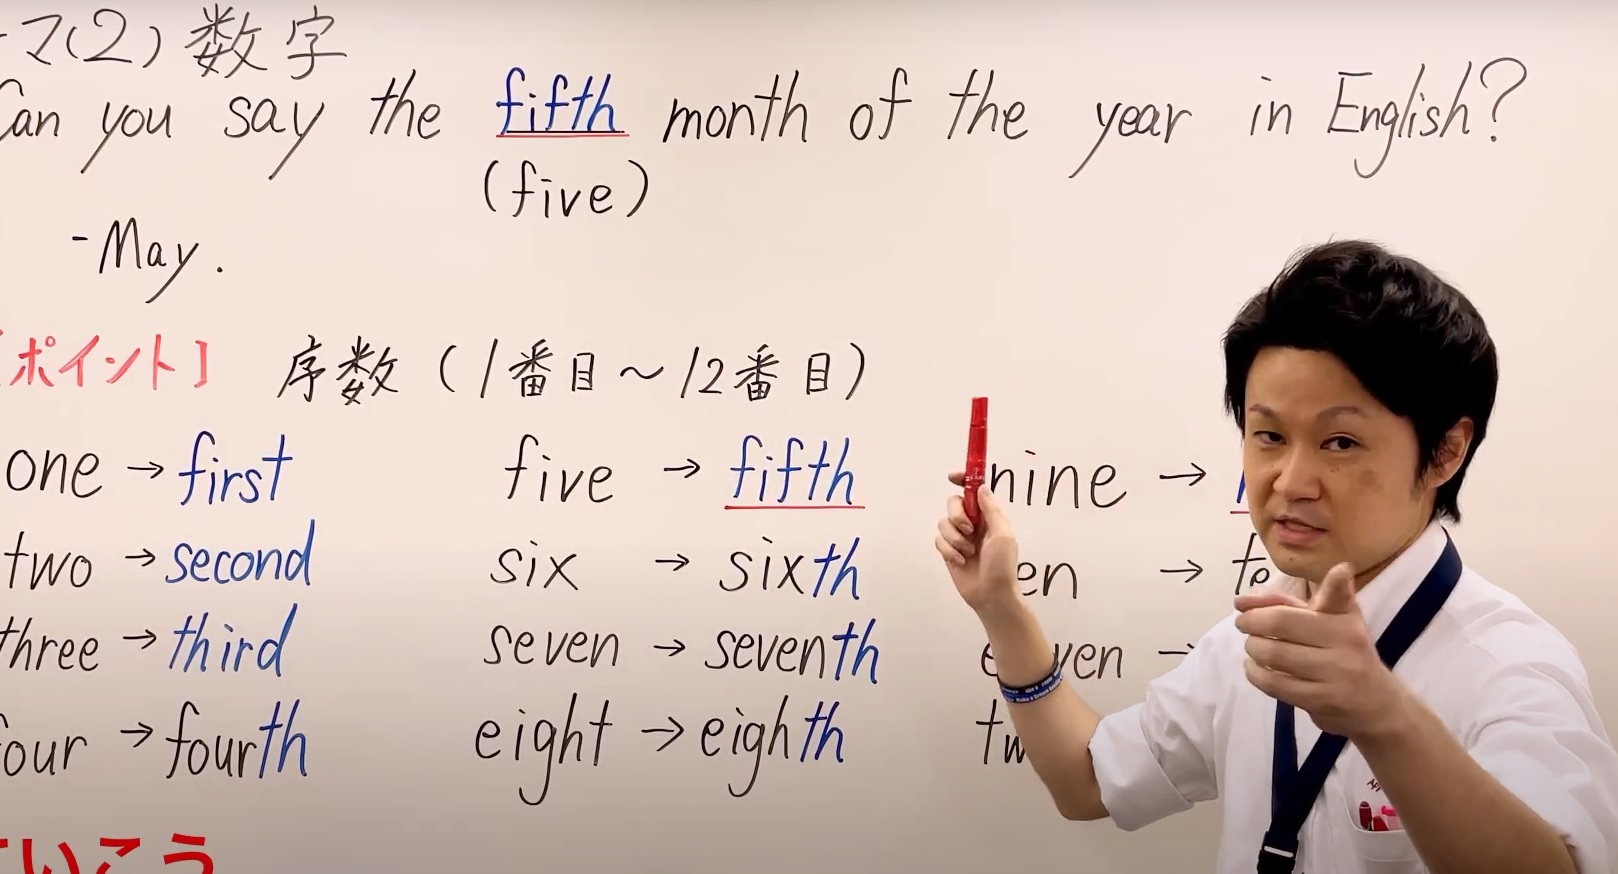 マ(2) 数字
Can you say the fifth month of the year in English?
(five)
-May.
[ポイント] 序数 (1番目~12番目)
one → first five → fifth nine →
two → second six → sixth en → te
three → third seven → seventh →
four → fourth eight → eighth tw
ていこう